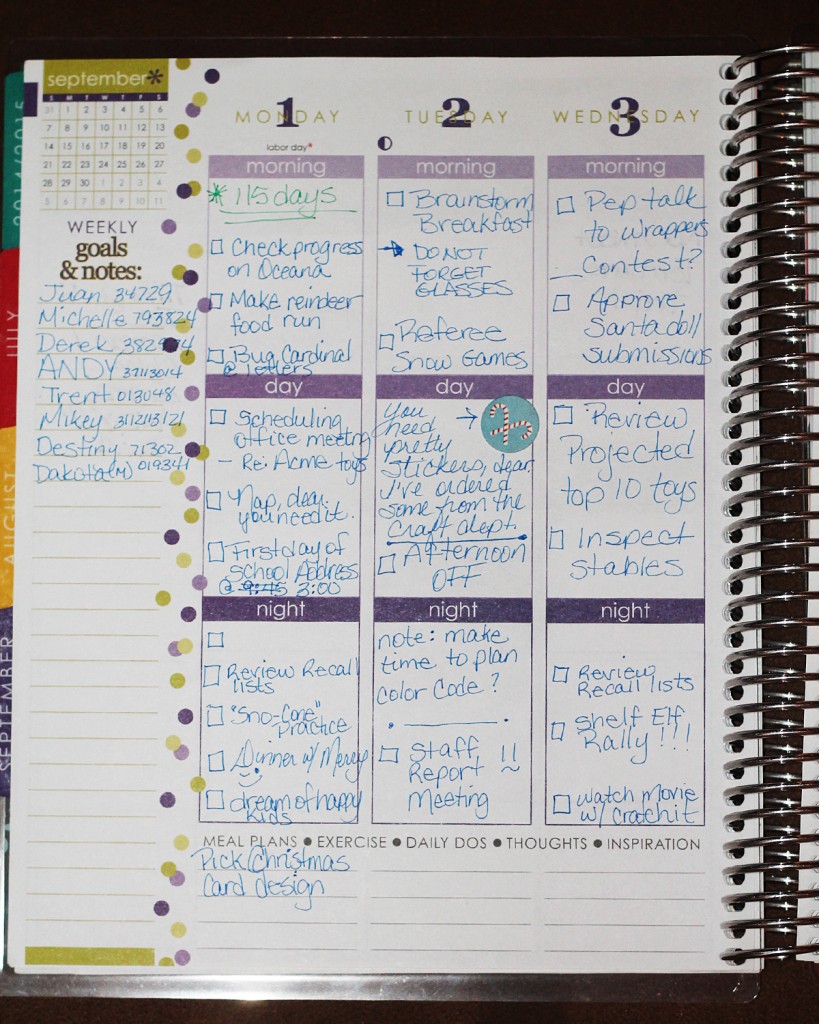 2014/2015
JULY
AUGUST
SEPTEMBER
september*
S M T W T F S
31 1 2 3 4 5 6
7 8 9 10 11 12 13
14 15 16 17 18 19 20
21 22 23 24 25 26 27
28 29 30 1 2 3 4
5 6 7 8 9 10 11
WEEKLY
goals
& notes:
Juan 34729
Michelle 793824
Derek
ANDY
Trent 013048
Mikey
Destiny 71302
Dakota(M) 019341
1
MONDAY
labor day*
morning
* 115 days
Check progress
on Oceana
Make reindeer
food run
Bug Cardinal
@ letters
day
Scheduling
office meeting
- Re: Acme toys
Nap, dear,
you need it.
First day of
School Address
@ 9:45 3:00
night
Review Recall
lists
"Sno-Cone"
Practice
Dinner w/ Mercy
dream of happy
kids
2
TUESDAY
morning
Brainstorm
Breakfast
DO NOT
FORGET
GLASSES
Referee
Snow Games
day
You
need
pretty
stickers, dear,
I've ordered
some from the
craft dept.
Afternoon
OFF
night
note: make
time to plan
color code?
Staff !!
Report
Meeting
3
WEDNESDAY
morning
Pep talk
to wrappers
_ Contest?
Approve
Santa doll
submissions
day
Review
Projected
top 10 toys
Inspect
Stables
night
Review
Recall lists
Shelf Elf
Rally!!!
watch Movie
w/ Cratchit
MEAL PLANS ● EXERCISE ● DAILY DOS ● THOUGHTS ● INSPIRATION
Pick Christmas
Card design